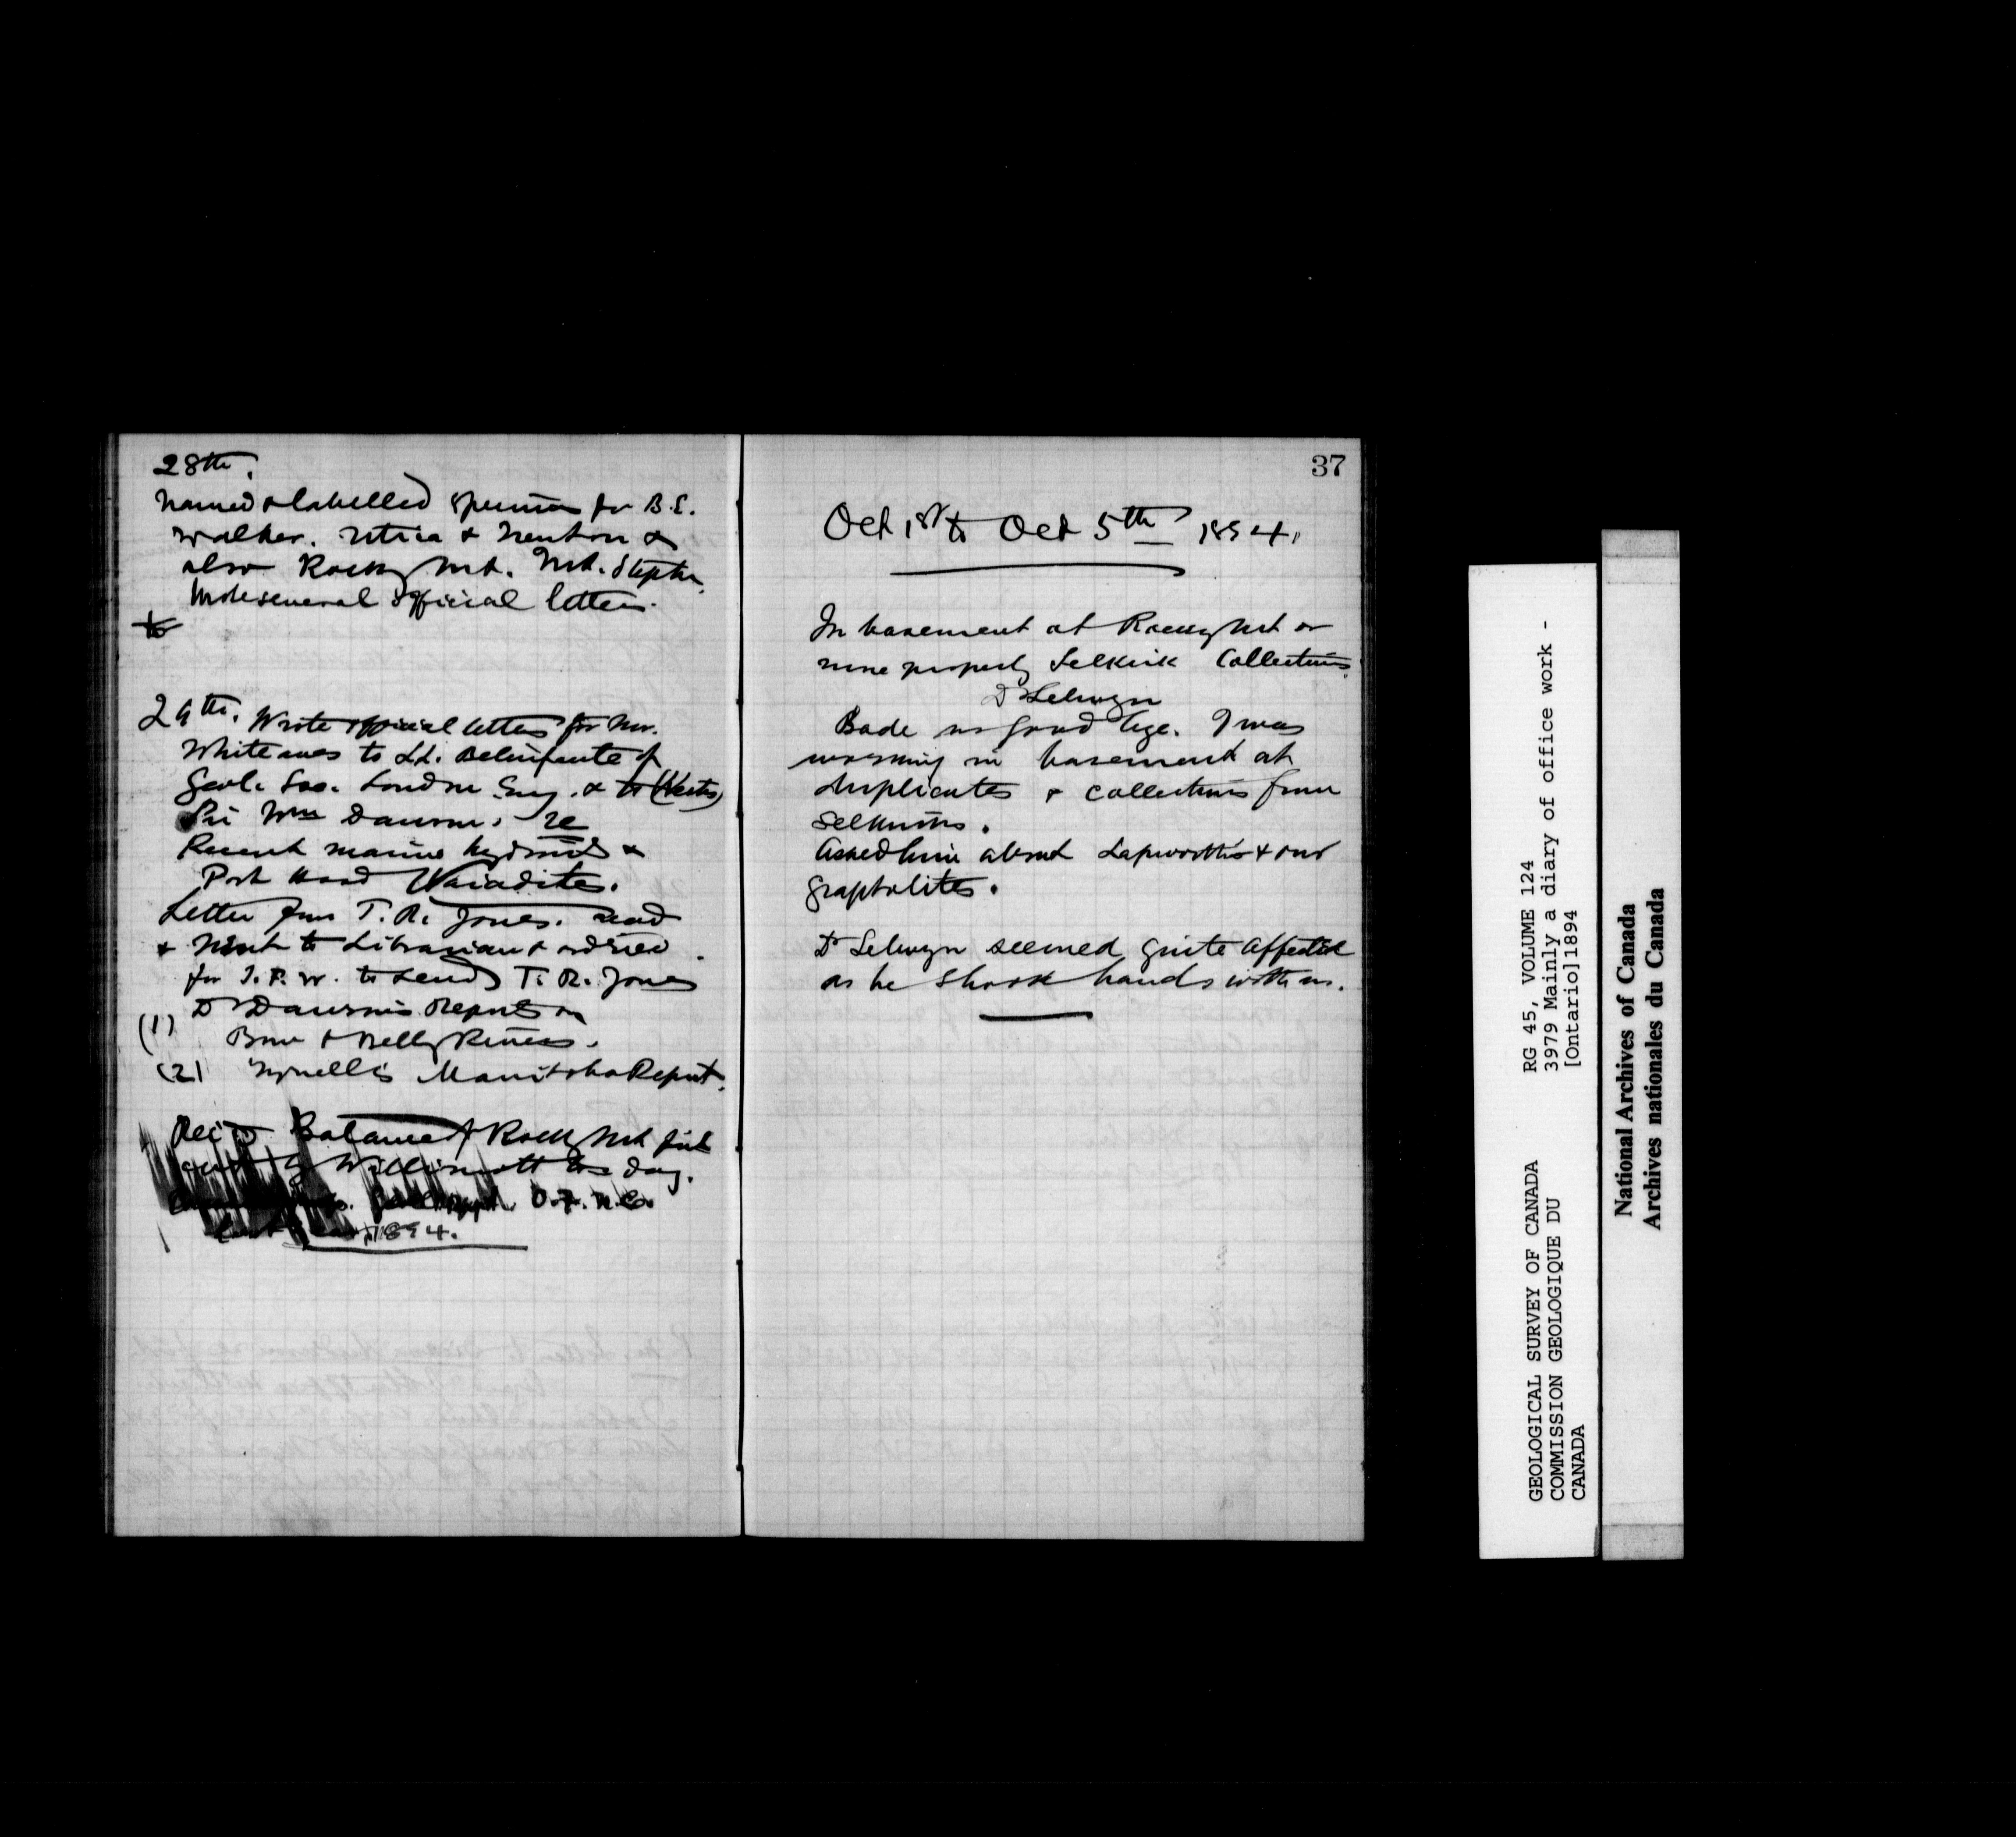 28th.
Named & labelled specimens for B.E.
Walker. Utica & Trenton &
also Rocky Mt. Mt. Stephen.
Wrote several official letters.
to
29th. Wrote official letters for Mr.
Whiteaves to Lt.
Geol. Soc. London Eng. & to (Keith)
Sir Wm Dawson. re
Recent marine hydroids &
Port Hood Naiadites.
Letter from T. R. Jones. read
& sent to Librarian & ordered
for J.F.W. to send T. R. Jones
Dr Dawson's Report on
(1) Bow & Belly Rivers.
(2) Tyrrell's Manitoba Report.
Rec'd Balance of Rocky Mt
by Willimott to day.
O.F.N.C.
1894.
37
Oct 1st to Oct 5th 1894.
In basement at Rocky Mt or
more properly Selkirk Collections.
Dr Selwyn
Bade us good bye. I was
working in basement at
duplicates & collections from
Selkirks.
Asked him about Lapworth's & our
graptolites.
Dr Selwyn seemed quite affected
as he shook hands with us.
GEOLOGICAL SURVEY OF CANADA
COMMISSION GEOLOGIQUE DU
CANADA
RG 45, VOLUME 124
3979 Mainly a diary of office work -
[Ontario]1894
National Archives of Canada
Archives nationales du Canada